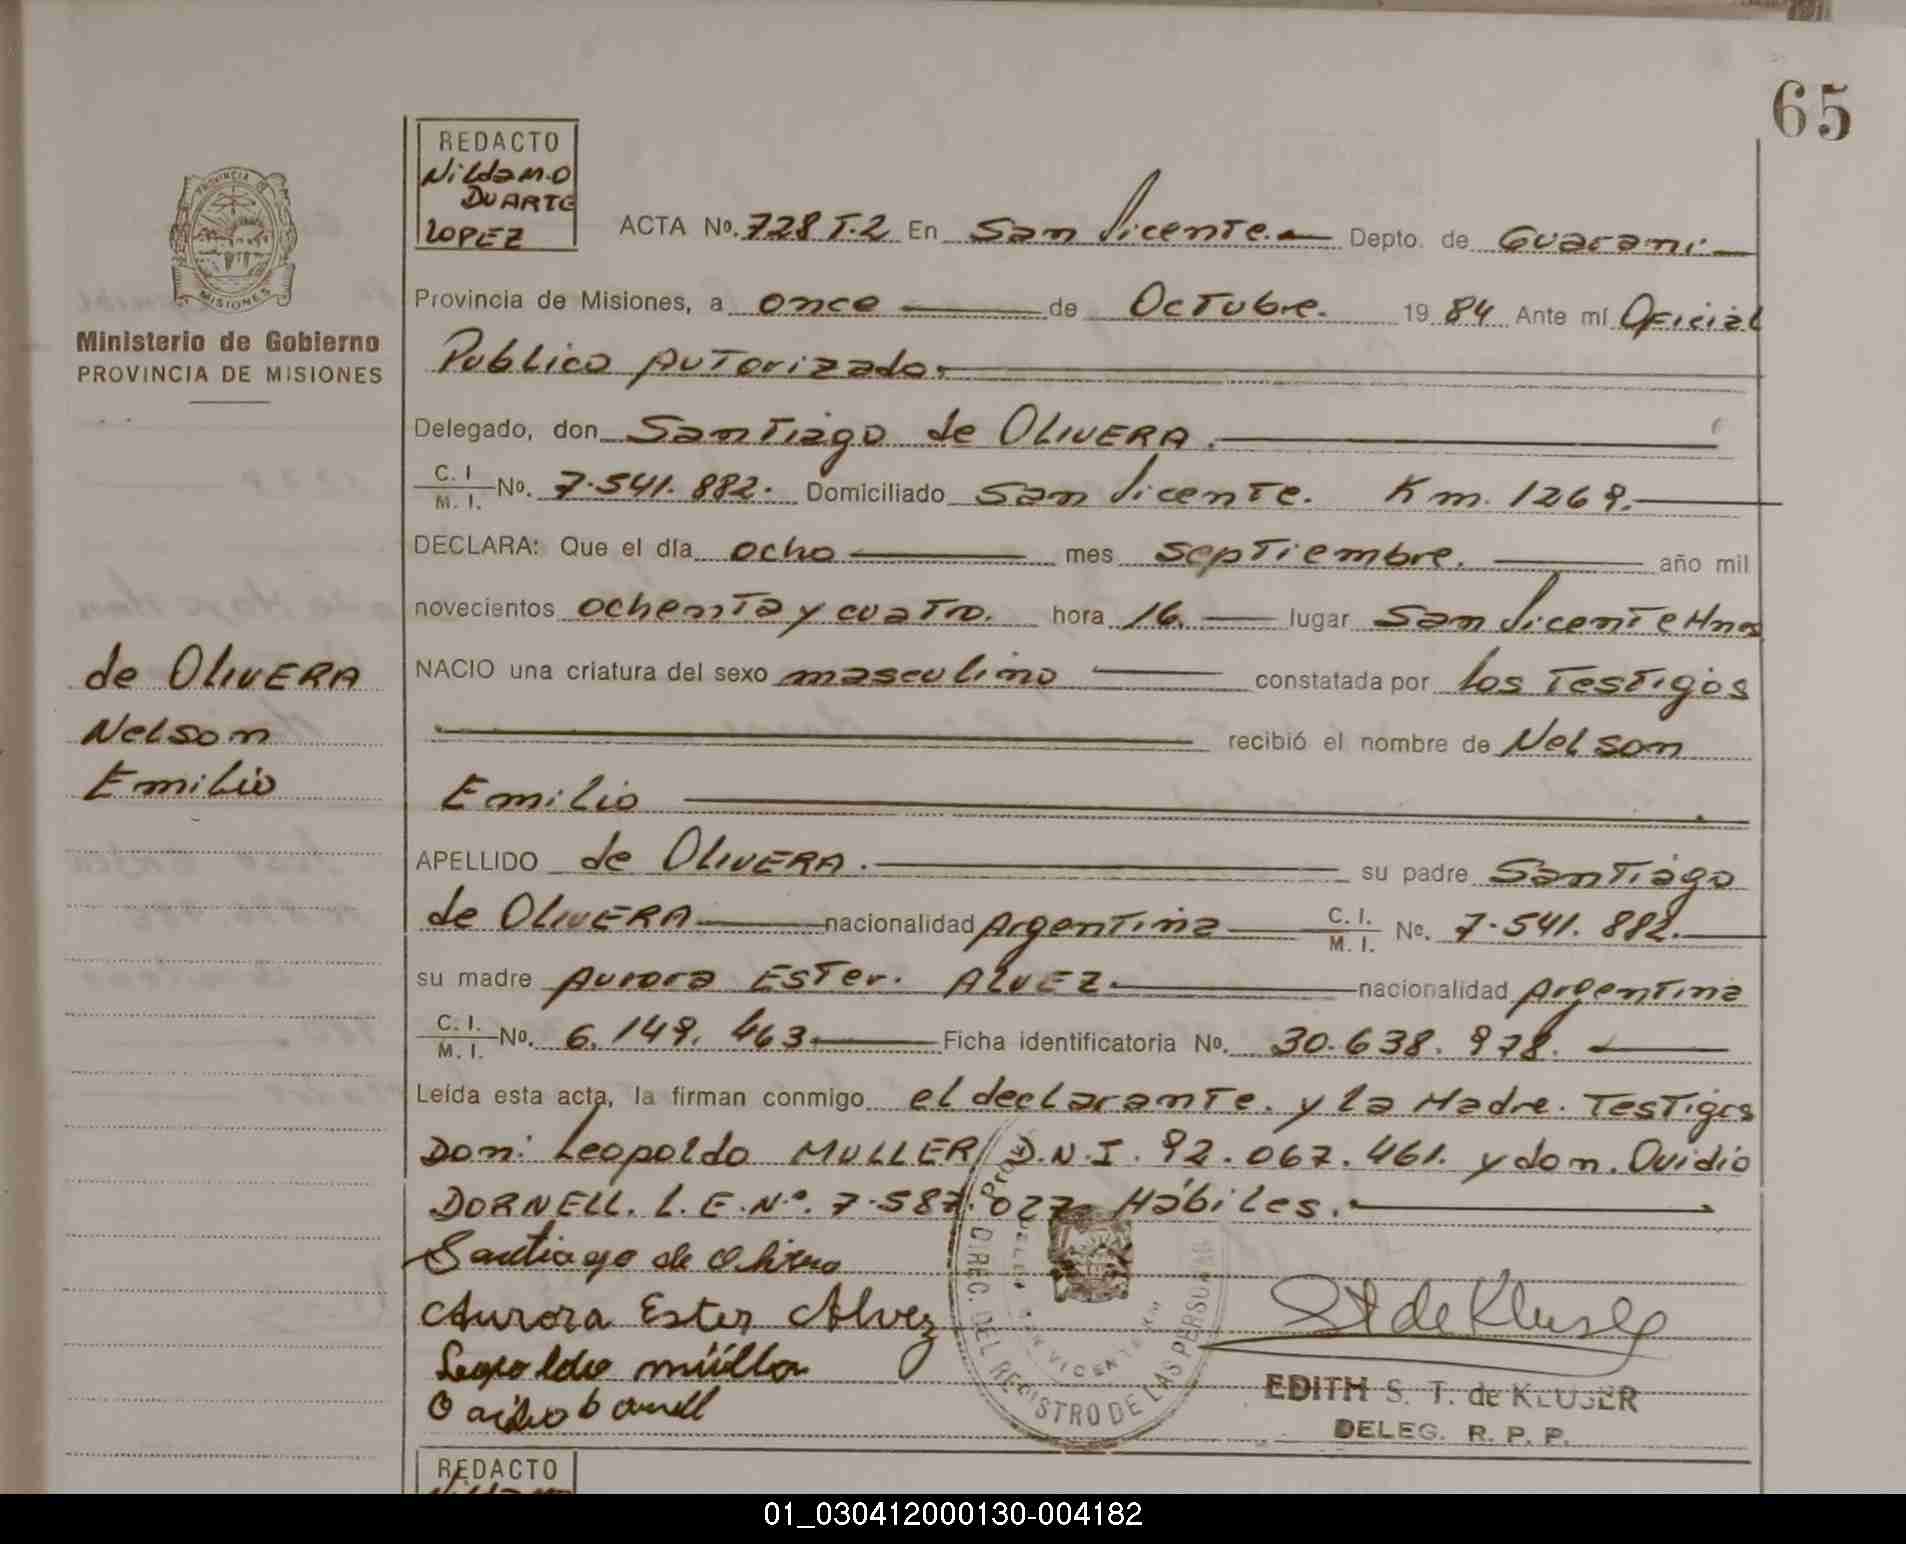 65
REDACTO
Nildam.O
DUARTE
LOPEZ
ACTA Nº. 728 T.2 En San Vicente. Depto. de Guarani
PROVINCIA DE
MISIONES
Provincia de Misiones, a once de Octubre. 19 84 Ante mí Oficial
Ministerio de Gobierno
PROVINCIA DE MISIONES
Publico Autorizado.
Delegado, don Santiago de OLIVERA.
C. I.
M. I. Nº. 7.541.882. Domiciliado San Vicente. Km. 1269.
DECLARA: Que el día ocho mes septiembre. año mil
novecientos ochenta y cuatro. hora 16. lugar San Vicente Mnes
de OLIVERA
NACIO una criatura del sexo masculino constatada por los Testigos
Nelson
recibió el nombre de Nelson
Emilio
Emilio
APELLIDO de OLIVERA. su padre Santiago
de OLIVERA nacionalidad Argentina C. I. M. I. Nº. 7.541.882.
su madre Aurora Ester. ALVEZ. nacionalidad Argentina
C. I.
M. I. Nº. 6.149.463. Ficha identificatoria Nº. 30.638.978.
Leída esta acta, la firman conmigo el declarante. y la Madre. Testigos
Don: Leopoldo MULLER D.N.I. 92.067.461. y don. Ovidio
DORNELL. L.E.Nº. 7.587.027 Hábiles.
Santiago de Olivera
Aurora Ester Alvez
Leopoldo müller
DIREC. DEL REGISTRO DE LAS PERSONAS
VICENTE
EDITH S. T. de KLUSER
DELEG. R. P. P.
REDACTO
01_030412000130-004182